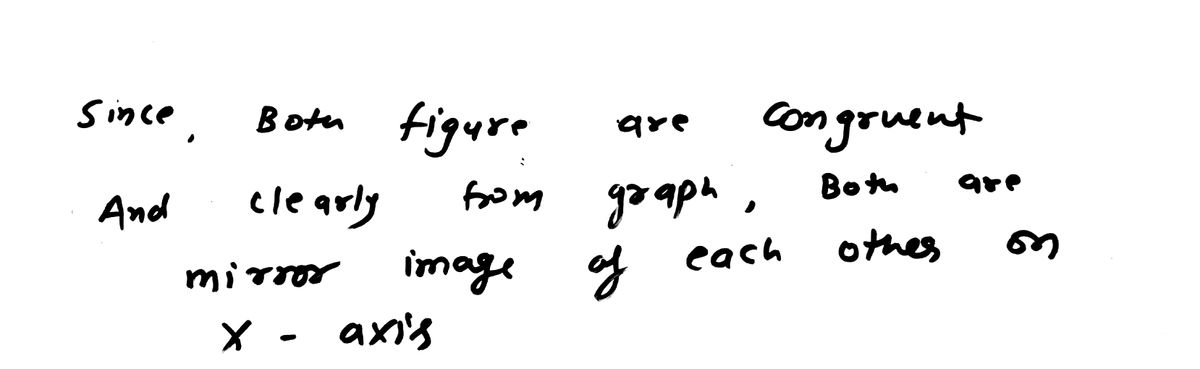 Since, Both figure are congruent
And clearly from graph, Both are
mirror image of each other on
X - axis